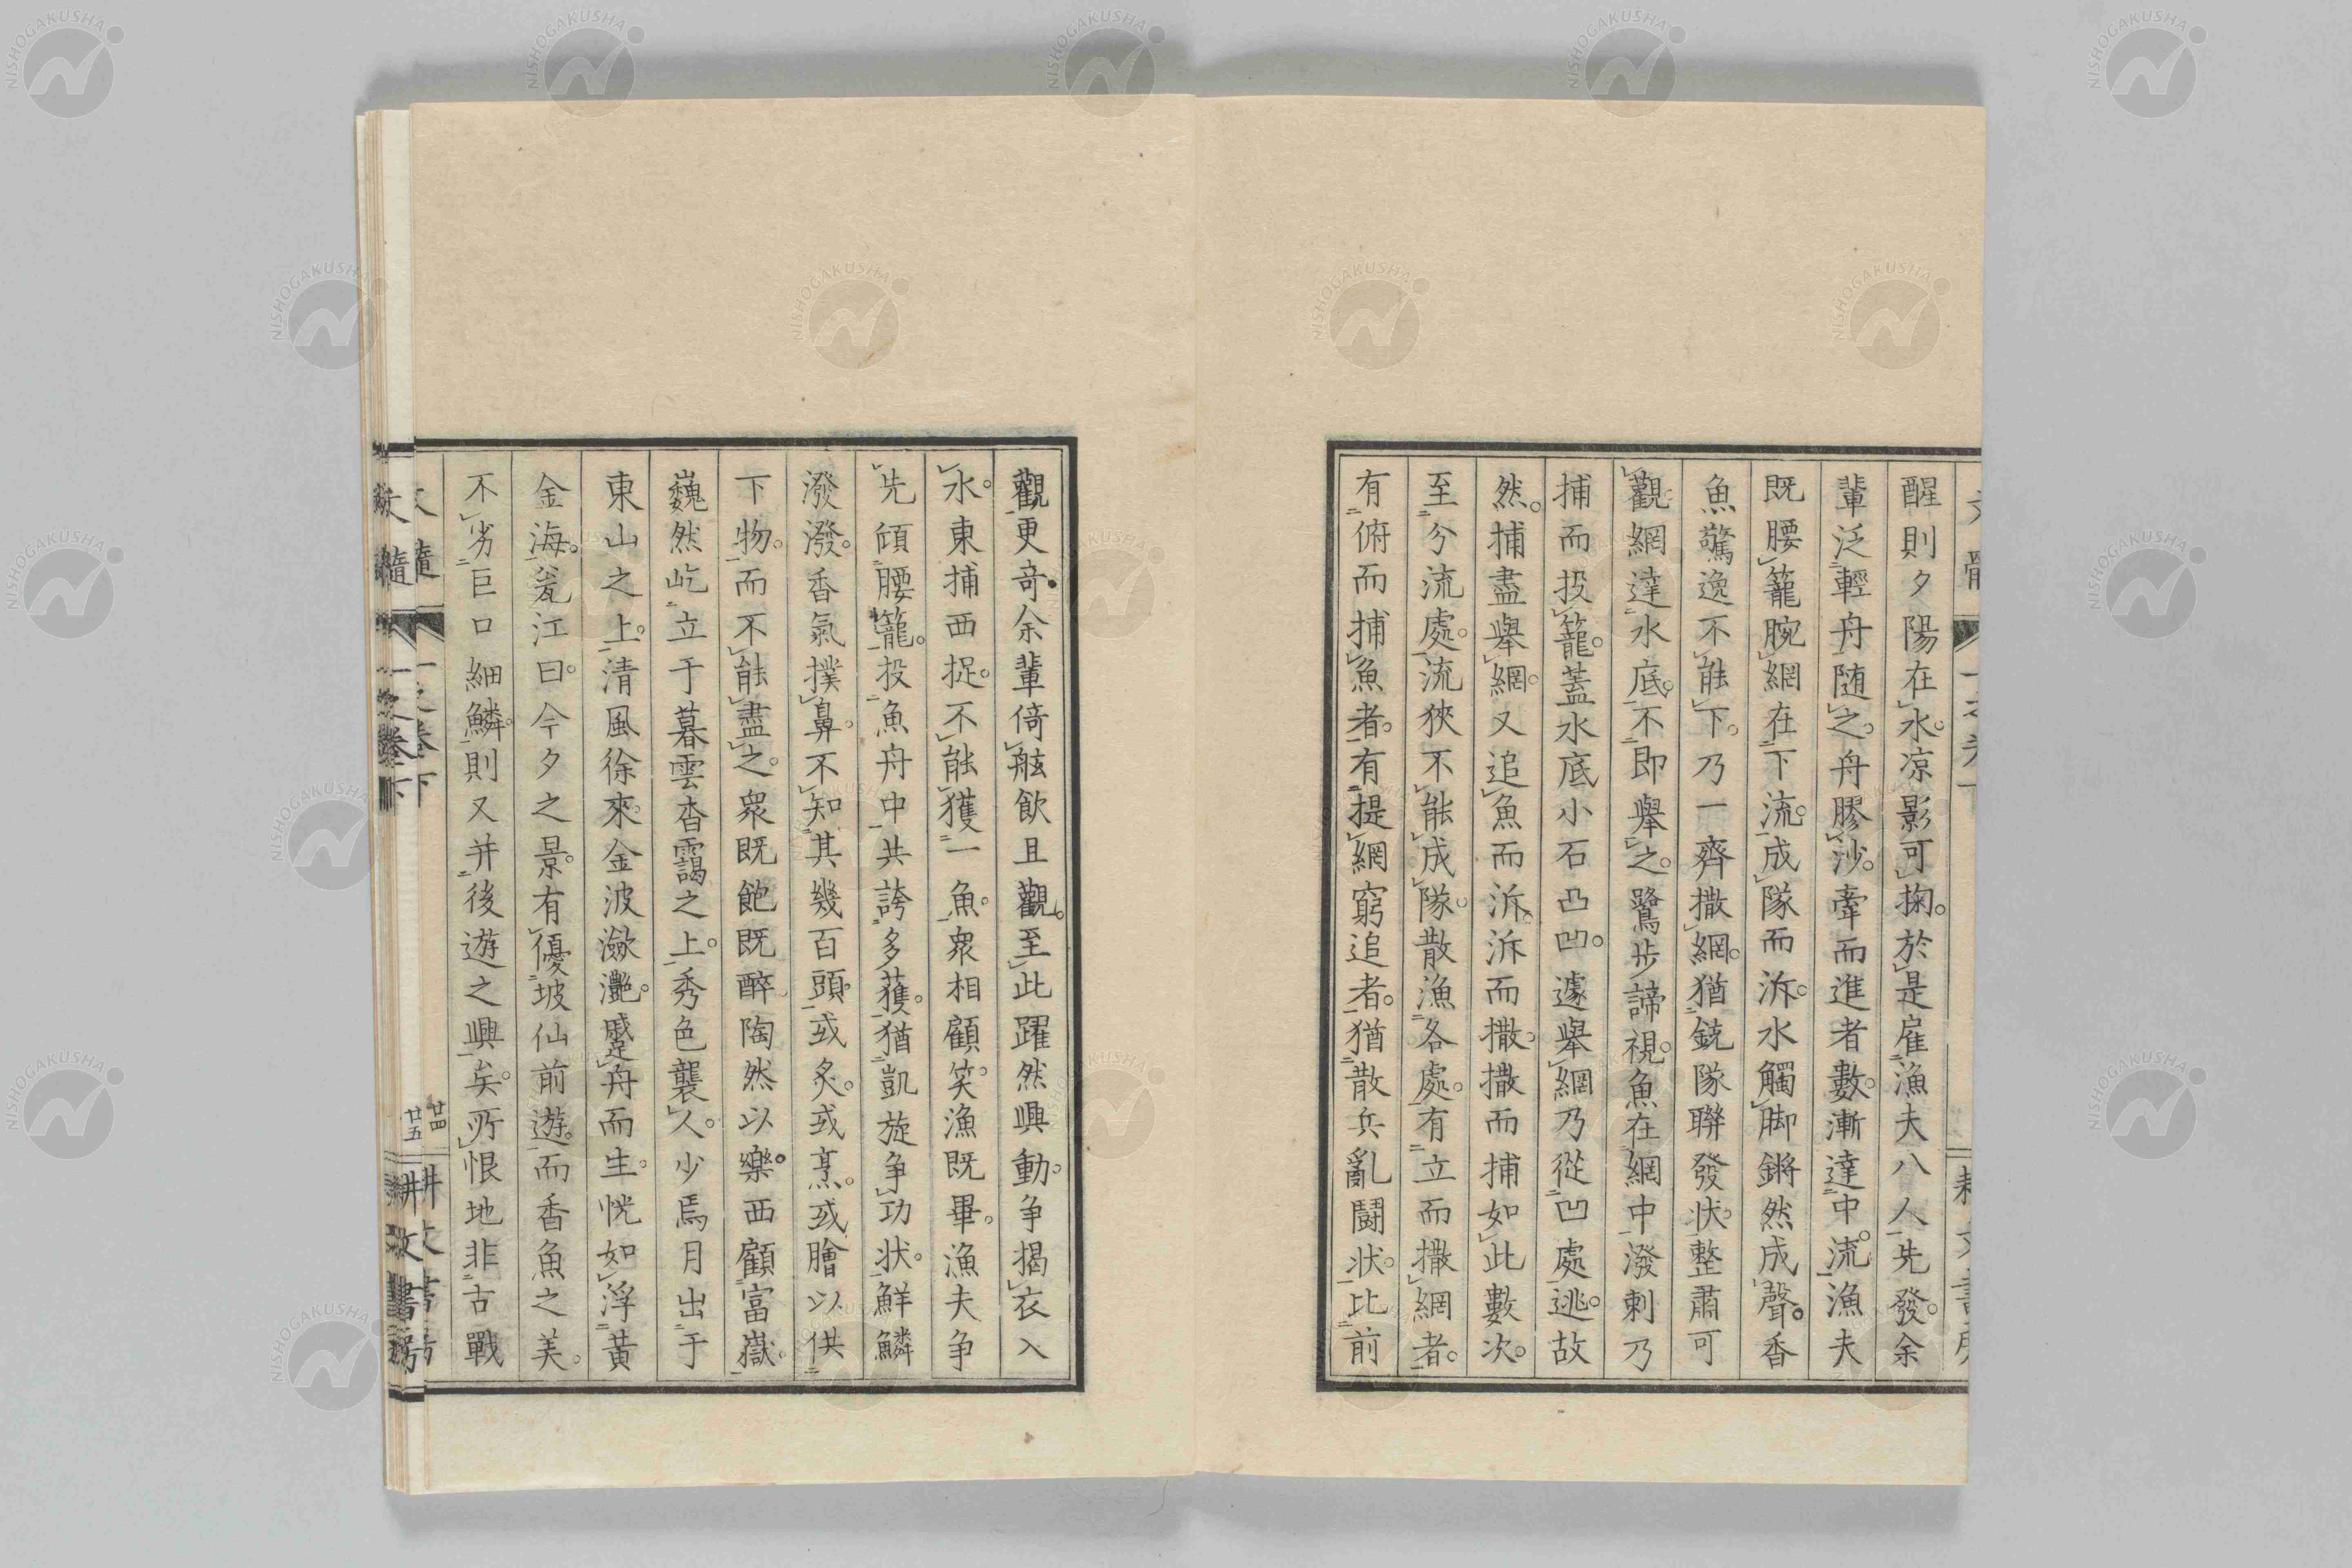 醒則夕陽在水。涼影可掬。於是雇漁夫八人先發。余
輩泛輕舟随之。舟膠沙。牽而進者數。漸達中流。漁夫
既腰籠腕網在下流。成隊而泝。水觸脚鏘然成聲。香
魚驚逸不能下。乃一齊撒網。猶銃隊聯發状。整肅可
觀。網達水底。不即舉之。鷺步諦視。魚在網中潑剌乃
捕而投籠。蓋水底小石凸凹。遽舉網乃從凹處逃。故
然。捕盡舉網。又追魚而泝。泝而撒。撒而捕如此數次。
至分流處。流狹不能成隊。散漁各處。有立而撒網者。
有俯而捕魚者。有提網窮追者。猶散兵亂鬪状。比前
觀更奇。余輩倚舷飲且觀。至此躍然興動。争揭衣入
水。東捕西捉。不能獲一魚。衆相顧笑。漁既畢。漁夫争
先傾腰籠。投魚舟中。共誇多獲。猶凱旋争功状。鮮鱗
潑潑。香氣撲鼻。不知其幾百頭。或炙。或烹。或膾以供
下物。而不能盡之。衆既飽既醉。陶然以樂。西顧富嶽。
巍然屹立于暮雲杳靄之上。秀色襲人。少焉月出于
東山之上。清風徐來。金波瀲灧。蹙舟而生。恍如浮黃
金海。瓮江曰。今夕之景。有優坡仙前遊。而香魚之美。
不劣巨口細鱗。則又并後遊之興矣。所恨地非古戰
文髓
一之卷下
廿四
廿五
耕文書房
NISHOGAKUSHA